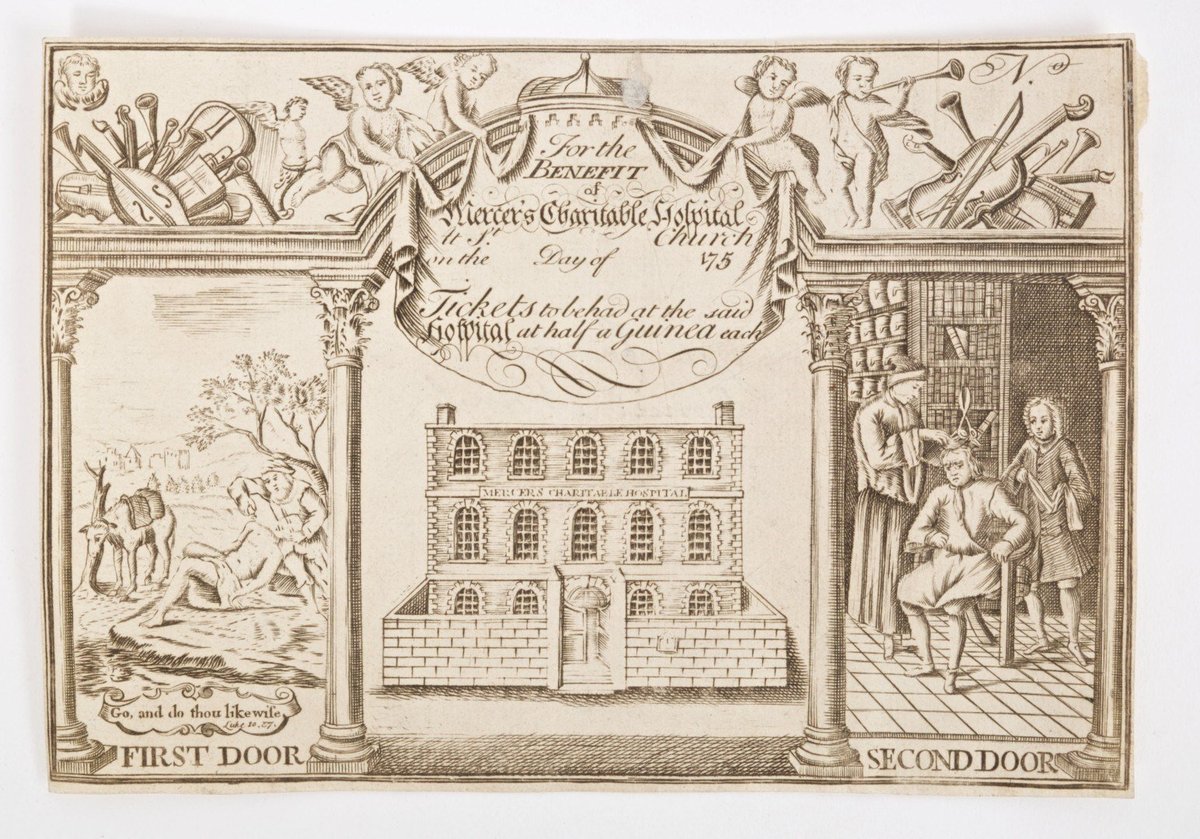 N.º
For the
BENEFIT
of
Mercer's Charitable Hospital
At St. Church
on the Day of 175
Tickets to be had at the said
Hospital at half a Guinea each
MERCERS CHARITABLE HOSPITAL
Go, and do thou likewise
Luke 10.27.
FIRST DOOR
SECOND DOOR